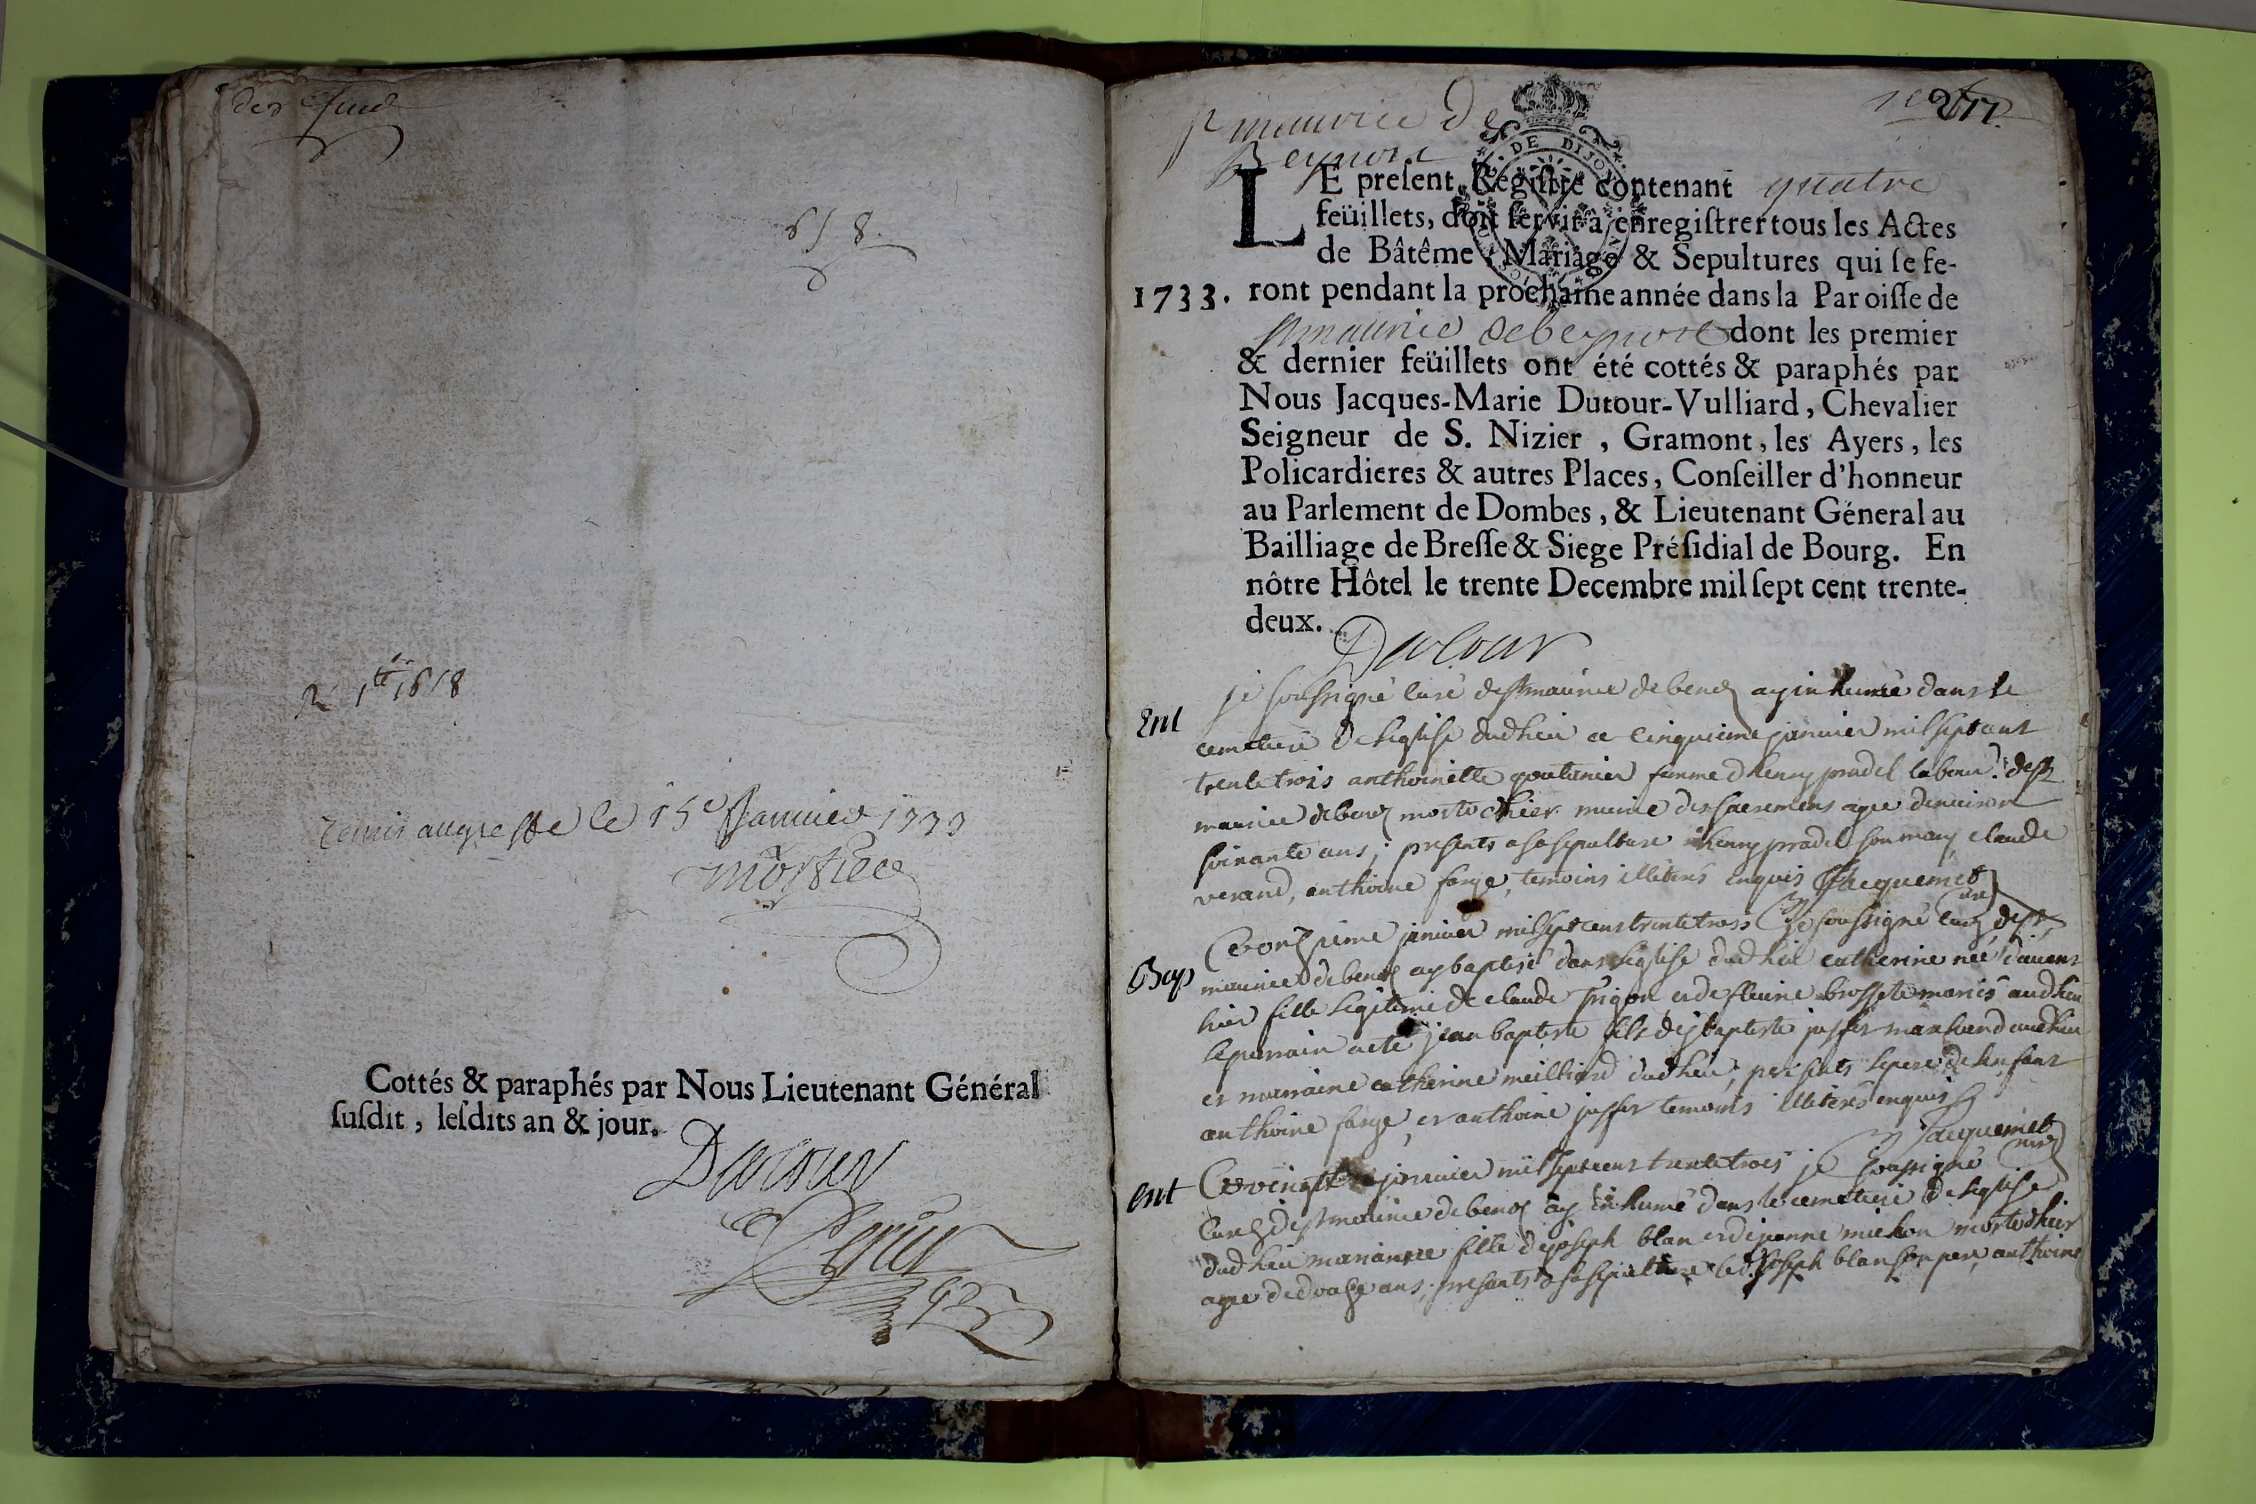 6 s 8.
R 1tt 16 s 8
remis au greffe le 15e Janvier 1733
Cottés & paraphés par Nous Lieutenant Général
ſuſdit, leſdits an & jour.
Dutour
St maurice de
Beynost
277.
DE DIJON
LE preſent Regiſtre contenant quatre
feüillets, doit ſervir a enregiſtrer tous les Actes
de Bâtême, Mariage & Sepultures qui ſe fe-
1733. ront pendant la prochaine année dans la Paroiſſe de
St maurice de beynost dont les premier
& dernier feüillets ont été cottés & paraphés par
Nous Jacques-Marie Dutour-Vulliard, Chevalier
Seigneur de S. Nizier, Gramont, les Ayers, les
Policardieres & autres Places, Conſeiller d'honneur
au Parlement de Dombes, & Lieutenant Géneral au
Bailliage de Breſſe & Siege Préſidial de Bourg. En
nôtre Hôtel le trente Decembre mil ſept cent trente-
deux.
Dutour
Ent
je soussigné curé de St maurice de beno ay inhumé dans le
cemetiere de leglise dud lieu ce cinquieme janvier mil sept cent
trente trois anthoinette femme d henry pradel labour. de St
maurice de beno morte d hier munie des sacremens agee denviron
soixante ans; presents a sa sepulture henry pradel son mary claude
verand, anthoine farge, temoins illiteres enquis Jacquemet
curé
Bap
Ce onzieme janvier mil sept cent trente trois je soussigné curé de St
maurice de beno ay baptisé dans leglise dud lieu catherine née davant
hier fille legitime de claude et de fleurie brossete mariés aud lieu
le parrain a eté jean baptiste fils de jbaptiste marchand aud lieu
et marraine catherine meilliard dud lieu, presents le pere de lenfant
anthoine farge, et anthoine temoins illiteres enquis
Jacquemet
curé
Ent
Ce vingt janvier mil sept cent trente trois je soussigné
curé de St maurice de beno ay inhumé dans le cemetiere de leglise
dud lieu marianne fille de joseph blan et de jeanne michon morte d hier
agee de douze ans; presents a sa sepulture led. joseph blan son pere, anthoine